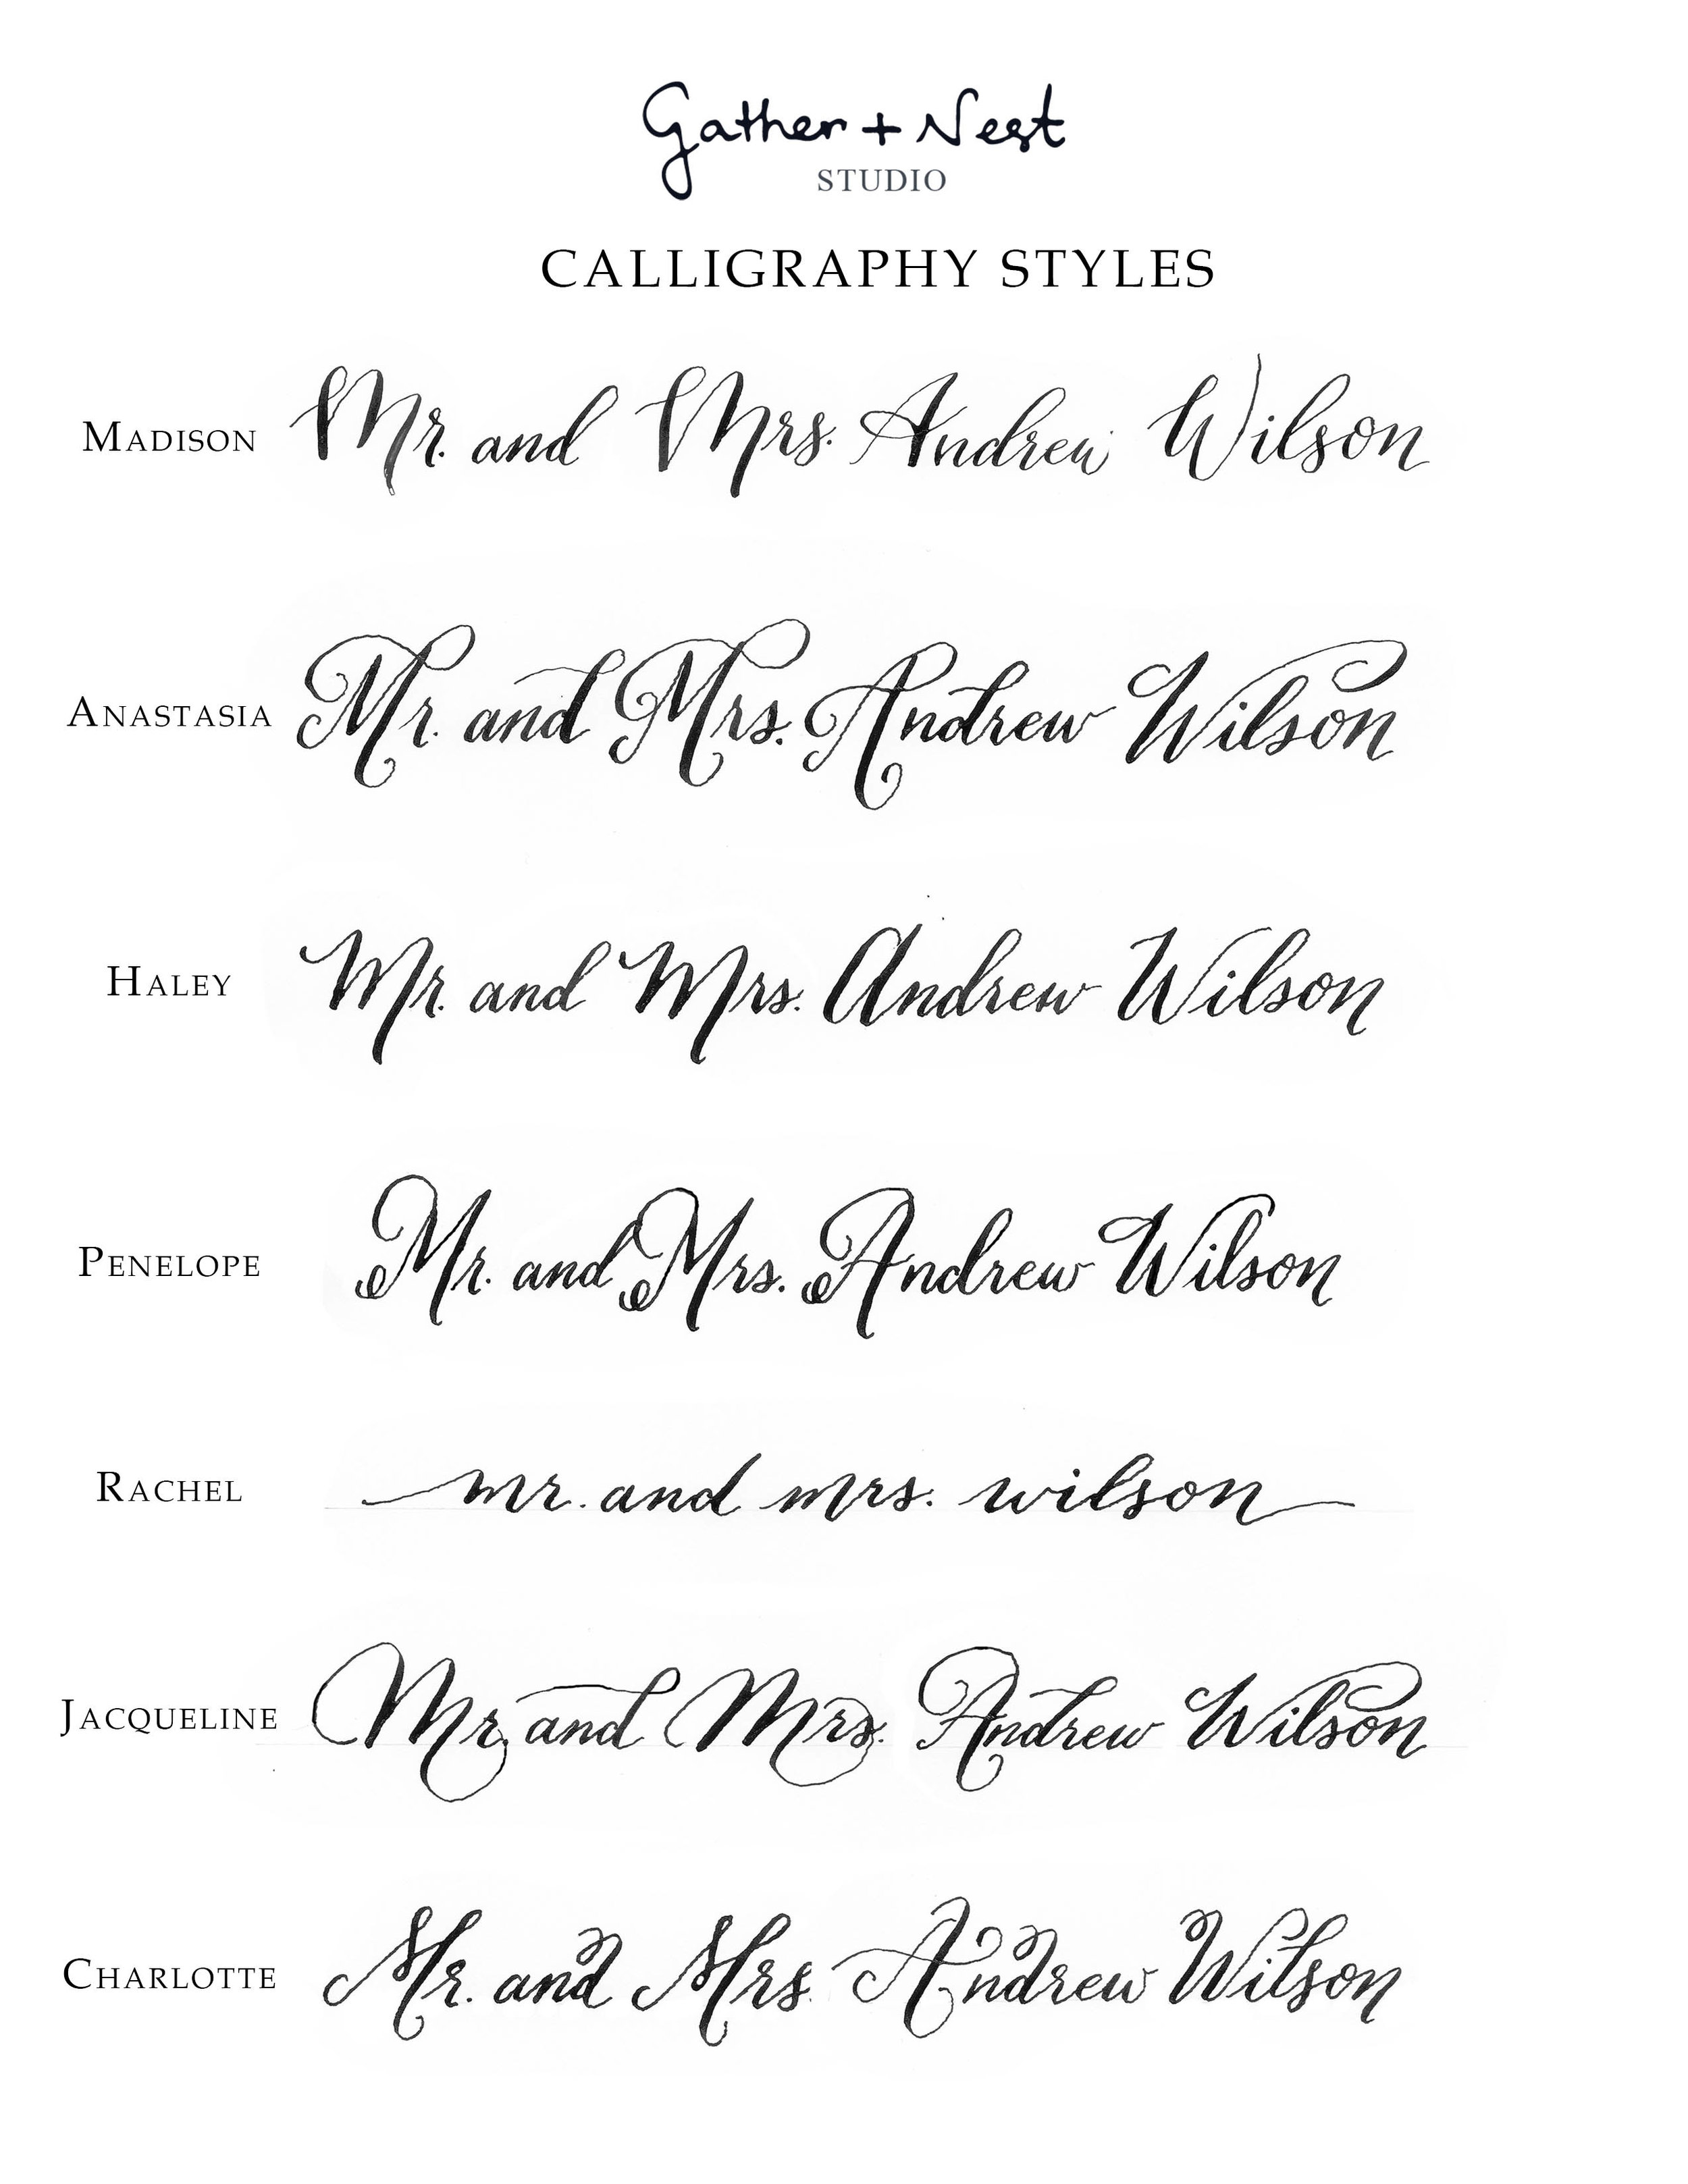 Gather + Nest
STUDIO
CALLIGRAPHY STYLES
MADISON Mr. and Mrs. Andrew Wilson
ANASTASIA Mr. and Mrs. Andrew Wilson
HALEY Mr. and Mrs. Andrew Wilson
PENELOPE Mr. and Mrs. Andrew Wilson
RACHEL mr. and mrs. wilson
JACQUELINE Mr. and Mrs. Andrew Wilson
CHARLOTTE Mr. and Mrs. Andrew Wilson